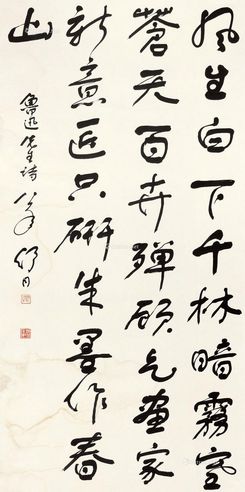 風生白下千林暗霧塞
蒼天百卉殫願乞畫家
新意匠只研朱墨作春
山
魯迅先生詩